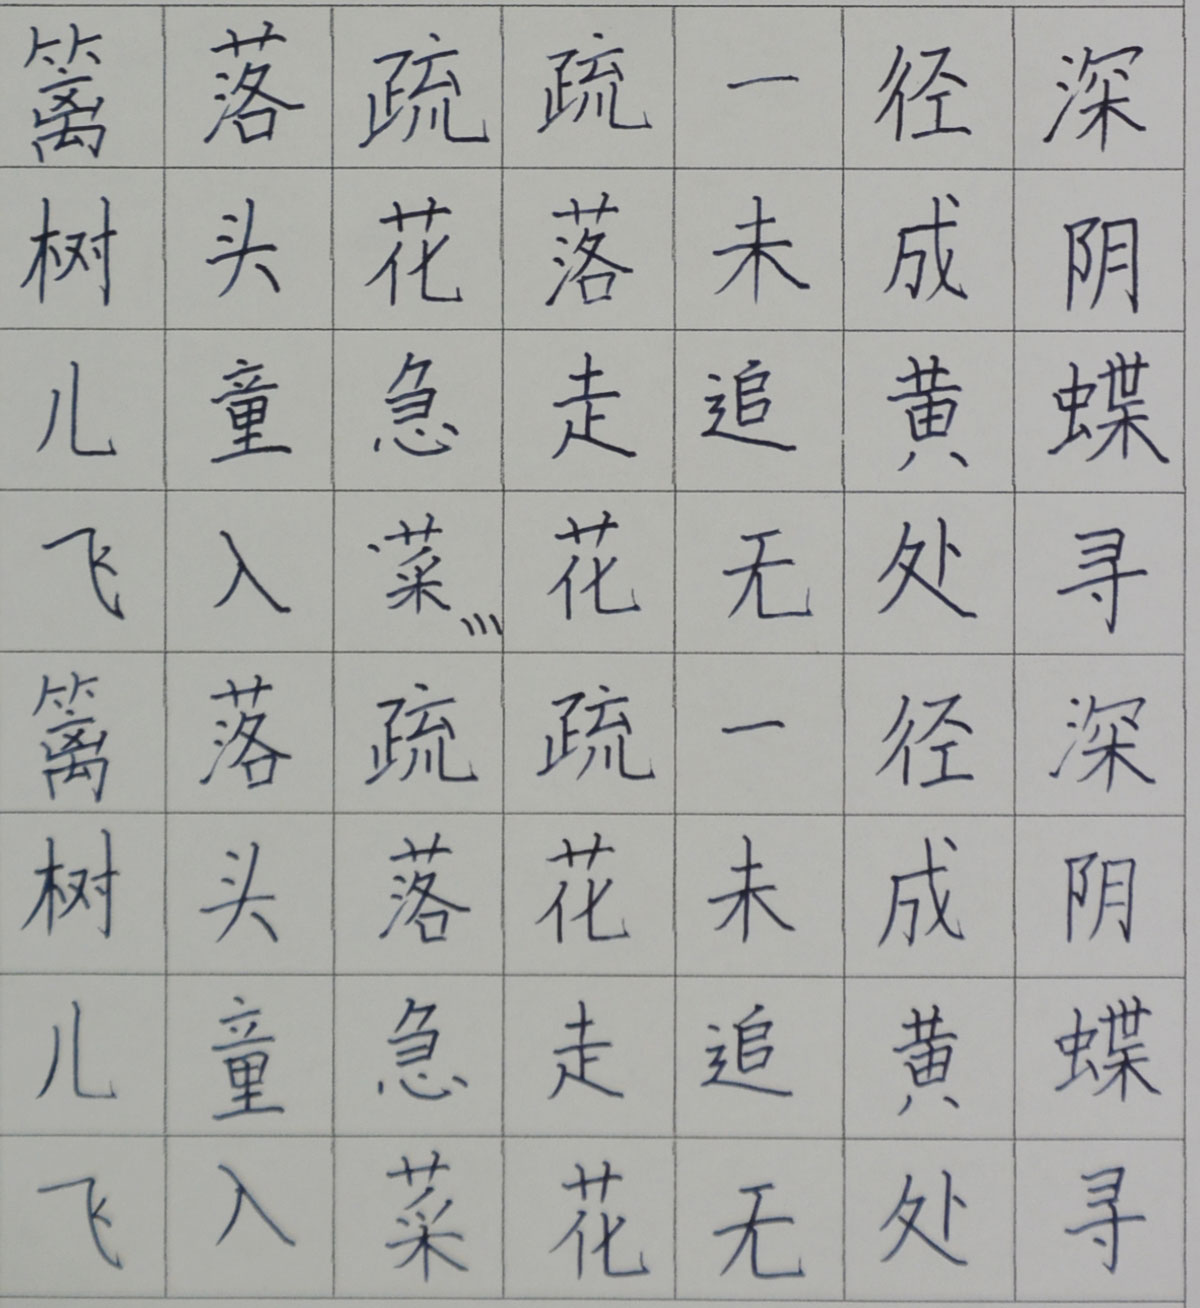 篱落疏疏一径深
树头花落未成阴
儿童急走追黄蝶
飞入菜花无处寻
篱落疏疏一径深
树头落花未成阴
儿童急走追黄蝶
飞入菜花无处寻